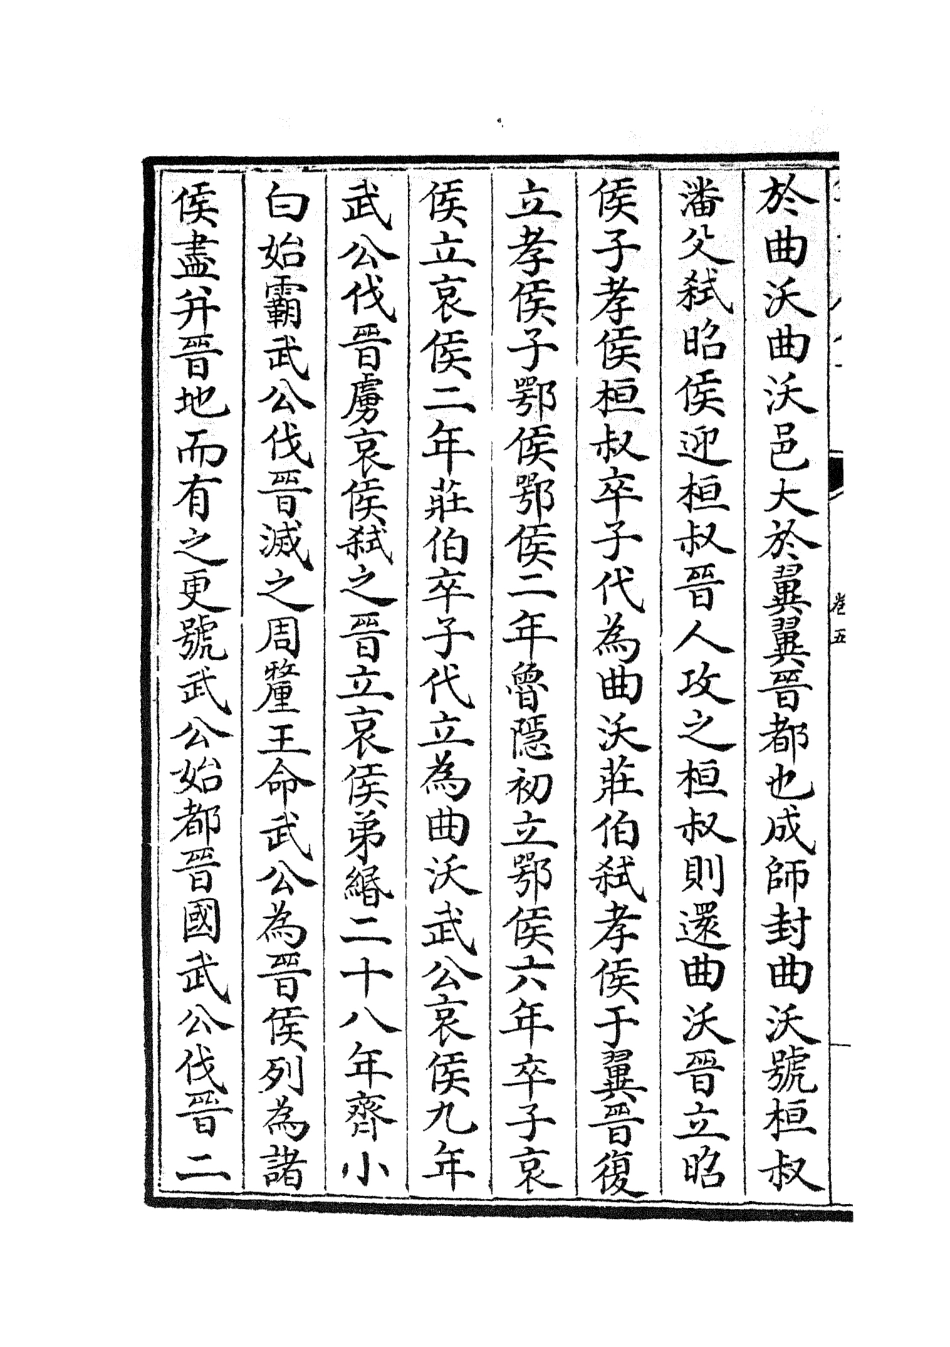 卷五
於曲沃曲沃邑大於翼翼晉都也成師封曲沃號桓叔
潘父弒昭侯迎桓叔晉人攻之桓叔則還曲沃晉立昭
侯子孝侯桓叔卒子代為曲沃莊伯弒孝侯于翼晉復
立孝侯子鄂侯鄂侯二年魯隱初立鄂侯六年卒子哀
侯立哀侯二年莊伯卒子代立為曲沃武公哀侯九年
武公伐晉虜哀侯弒之晉立哀侯弟緡二十八年齊小
白始霸武公伐晉滅之周釐王命武公為晉侯列為諸
侯盡并晉地而有之更號武公始都晉國武公伐晉二